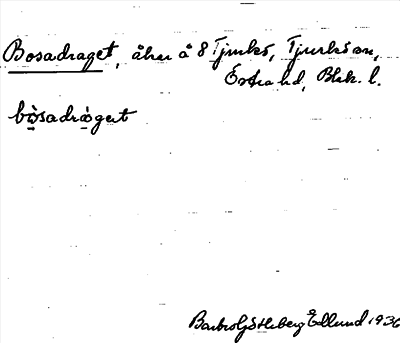 Bosadraget, åker å 8 Tjurkö, Tjurkö sn,
Östra hd, Blek. l.
bòsadràget
Barbro Götleberg Edlund 1936